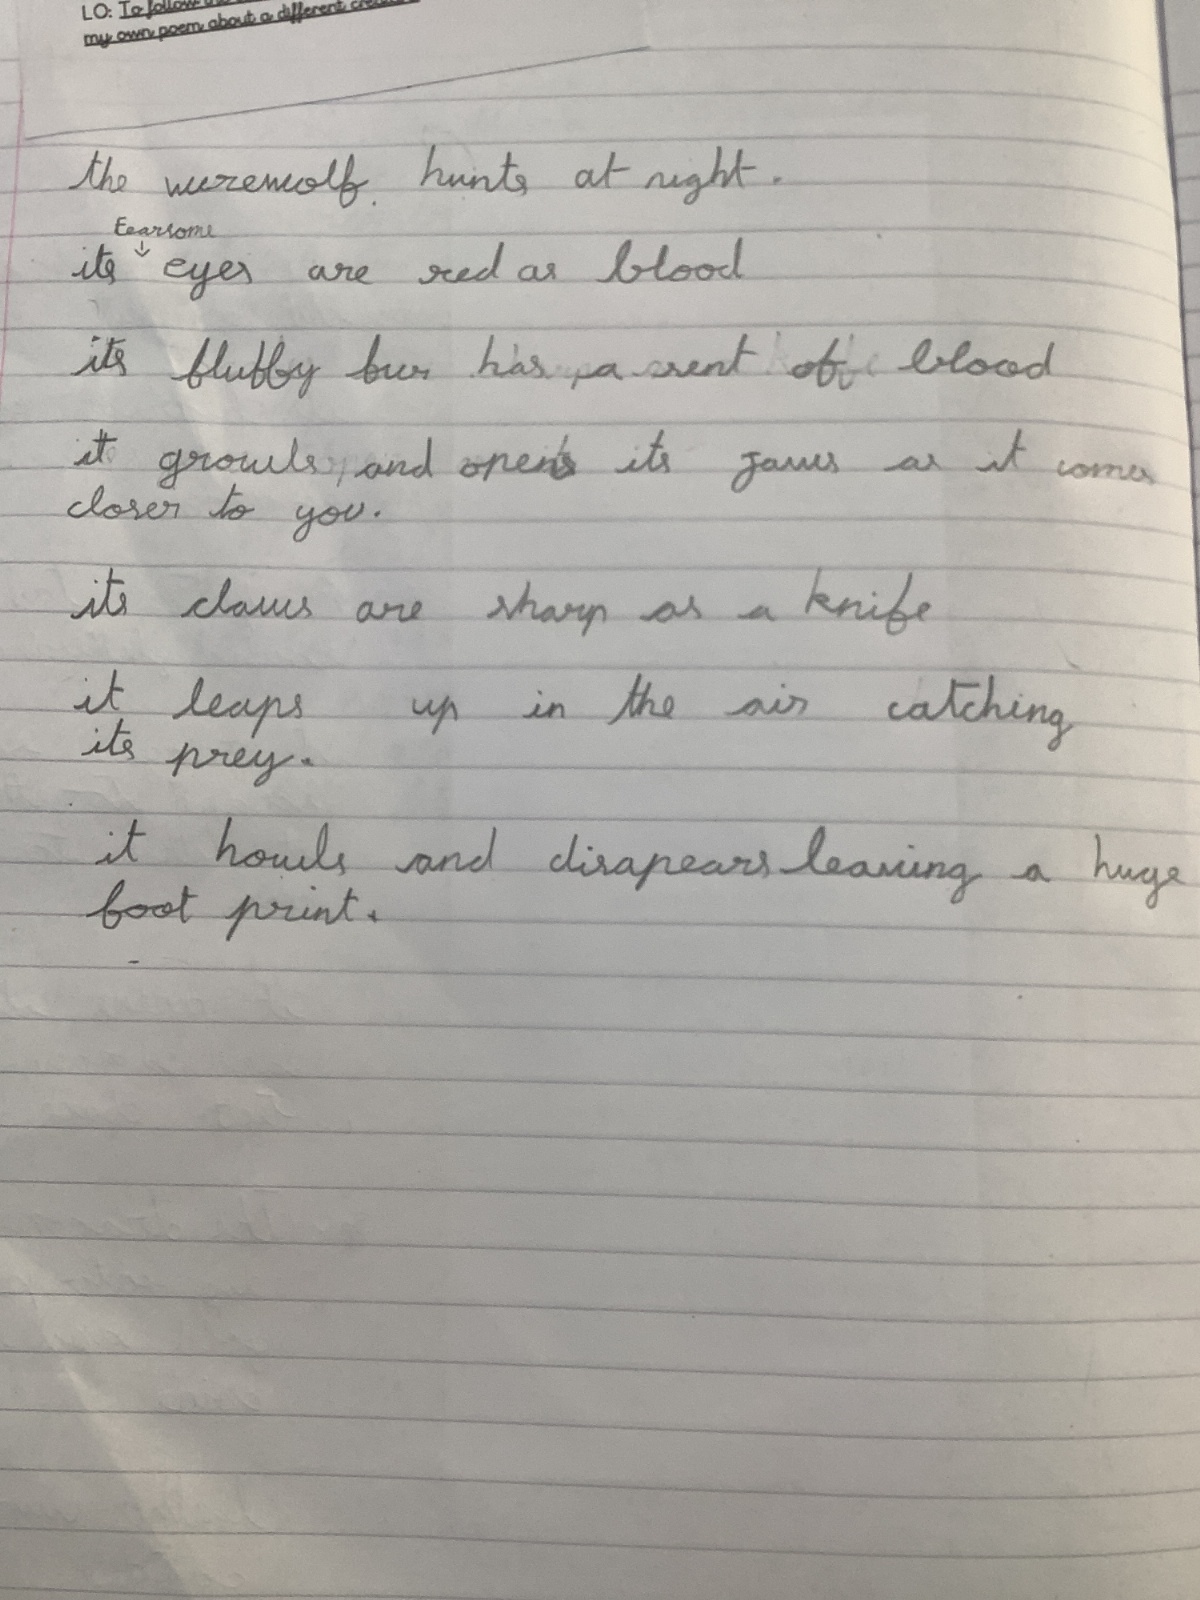 LO: To follow the
my own poem about a different
the wurewolf. hunts at night.
Fearsome
its eyes are red as blood
its fluffy fur has a sent of blood
it growls and opens its jaws as it comes
closer to you.
its claws are sharp as a knife
it leaps up in the air catching
its prey.
it howls and disapears leaving a huge
foot print.